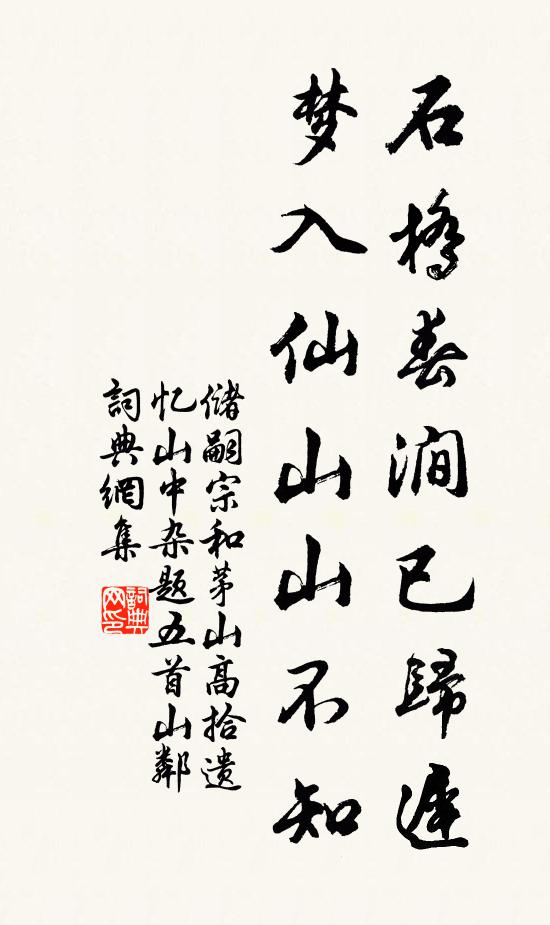 石橋春澗已歸遲
梦入仙山山不知
儲嗣宗和茅山高拾遗
忆山中杂题五首山鄰
詞典網集
詞典网印